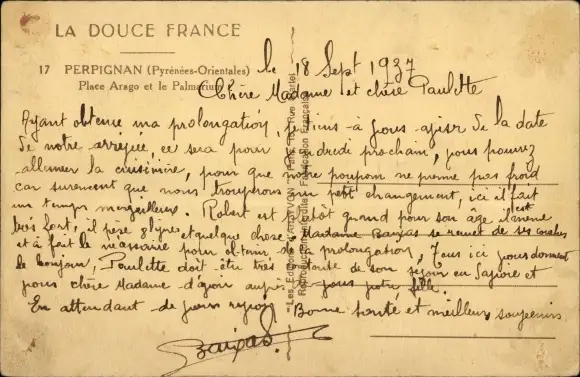 LA DOUCE FRANCE
17 PERPIGNAN (Pyrénées-Orientales)
Place Arago et le Palmarium
le 18 Sept 1937
Chère Madame et chère Paulette
Ayant obtenue ma prolongation, je viens à vous aviser de la date
de notre arrivée, ce sera pour vendredi prochain, vous pouvez
allumer la cuisinière, pour que notre poupom ne prenne pas froid
car surement que nous trouverons un petit changement, ici il fait
un temps merveilleux. Robert est plutôt grand pour son age il est
très fort, il pèse et quelque chose. Madame Banjas se remet de ses couches
et a fait le nécessaire pour obtenir sa prolongation, Tous ici vous donnent
le bonjour, Paulette doit être très de son séjour en Savoie et
vous chère Madame d'avoir auprès de vous votre fille.
En attendant de vous revoir Bonne santé et meilleurs souvenirs
"Les Editions d'Art YVON"
Reproduction interdite Fabrication Française